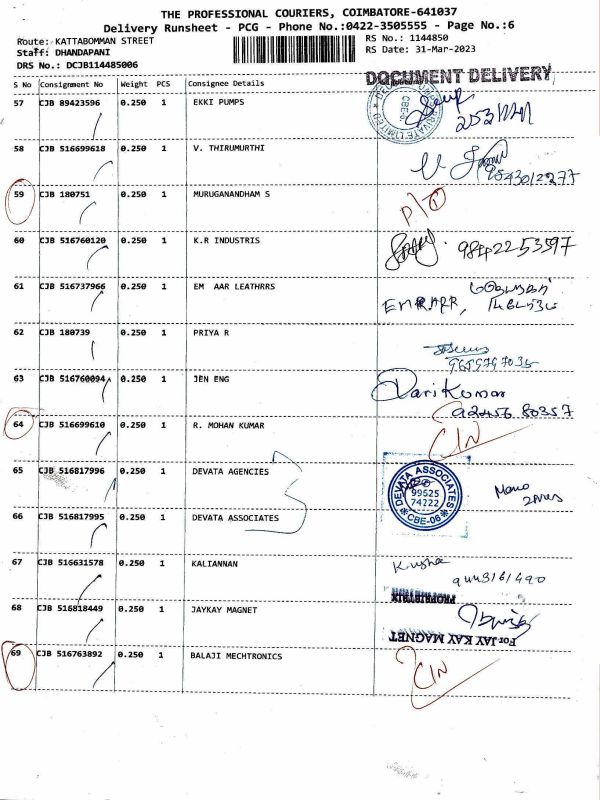 THE PROFESSIONAL COURIERS, COIMBATORE-641037
Delivery Runsheet - PCG - Phone No.:0422-3505555 - Page No.:6
Route: KATTABOMMAN STREET
RS No.: 1144850
Staff: DHANDAPANI
RS Date: 31-Mar-2023
DRS No.: DCJB114485006
DOCUMENT DELIVERY
S No Consignment No Weight PCS Consignee Details
57 CJB 89423596 0.250 1 EKKI PUMPS
PRIVATE LIMITED
58 CJB 516699618 0.250 1 V. THIRUMURTHI
9843012277
59 CJB 180751 0.250 1 MURUGANANDHAM S
60 CJB 516760120 0.250 1 K.R INDUSTRIS
9842253597
61 CJB 516737966 0.250 1 EM AAR LEATHRRS
62 CJB 180739 0.250 1 PRIYA R
63 CJB 516760094 0.250 1 JEN ENG
Hari Kumar
64 CJB 516699610 0.250 1 R. MOHAN KUMAR
C/N
65 CJB 516817996 0.250 1 DEVATA AGENCIES
DEVATA ASSOCIATES
99525
74222
CBE-06
66 CJB 516817995 0.250 1 DEVATA ASSOCIATES
67 CJB 516631578 0.250 1 KALIANNAN
PROPRIETRIX
68 CJB 516818449 0.250 1 JAYKAY MAGNET
For JAY KAY MAGNET
69 CJB 516763892 0.250 1 BALAJI MECHTRONICS
C/N